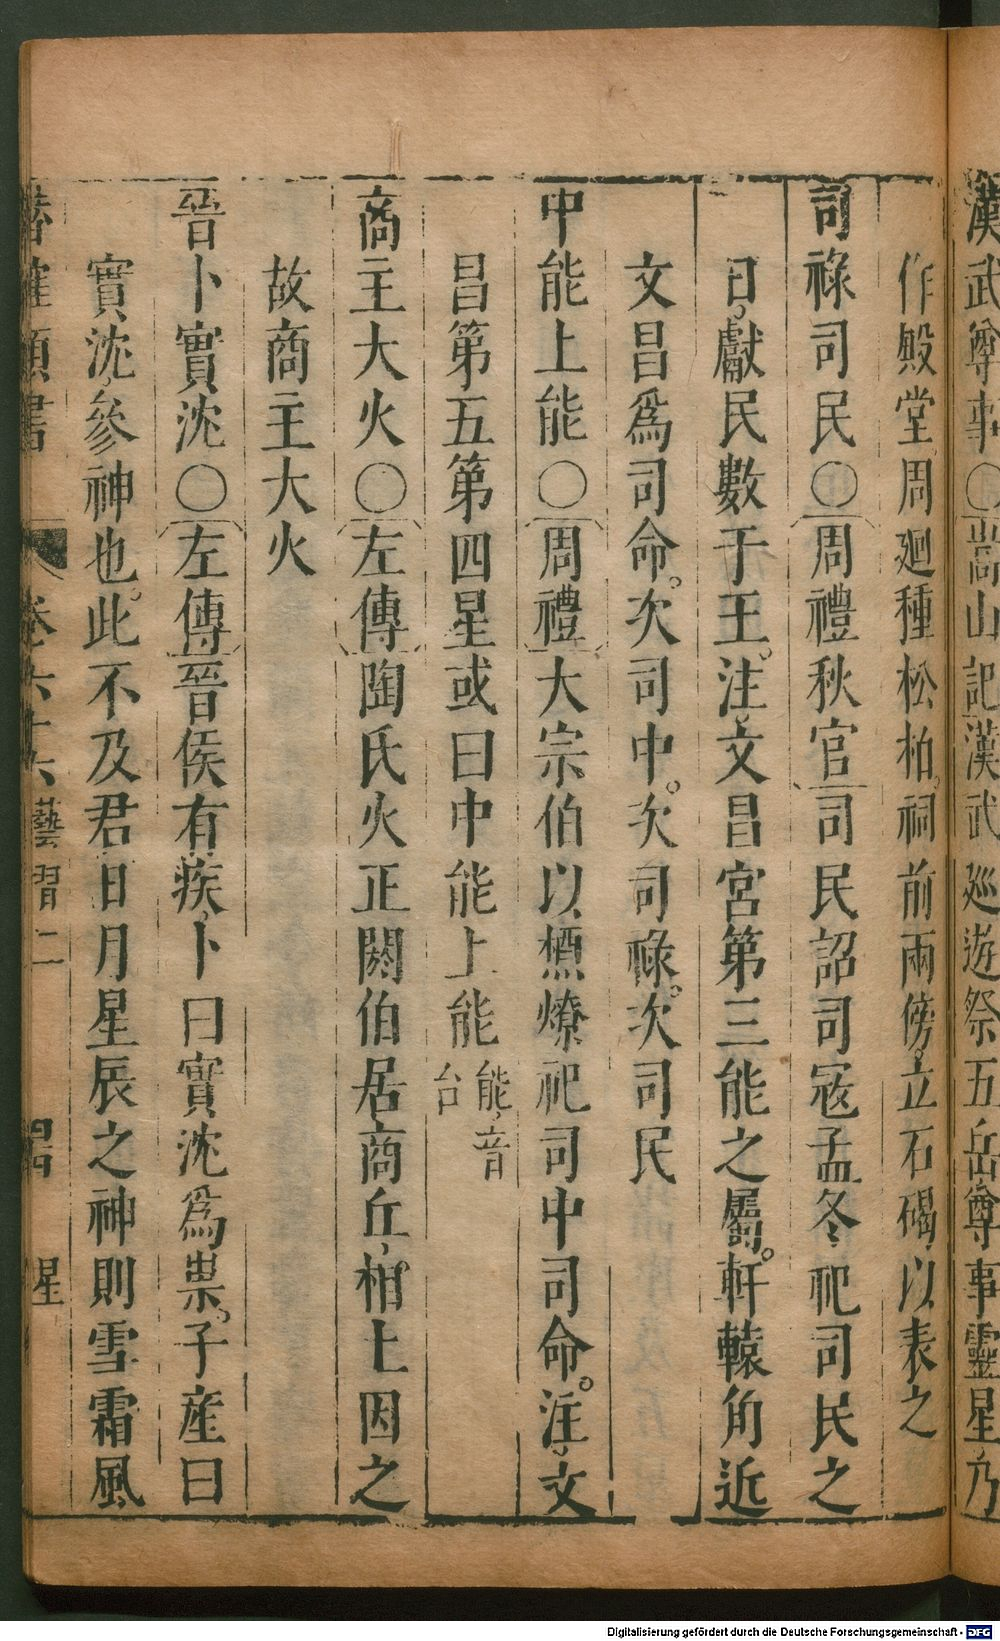 漢武尊事○嵩山記漢武巡遊祭五岳尊事靈星乃
作殿堂周廻種松柏祠前兩傍立石碣以表之
司祿司民○周禮秋官司民詔司寇孟冬祀司民之
日獻民數于王注文昌宮第三能之屬軒轅角近
文昌爲司命次司中次司祿次司民
中能上能○周禮大宗伯以槱燎祀司中司命注文
昌第五第四星或曰中能上能能音台
商主大火○左傳陶氏火正閼伯居商丘相土因之
故商主大火
晉卜實沈○左傳晉侯有疾卜曰實沈爲祟子產曰
實沈參神也此不及君日月星辰之神則雪霜風
卷六十六 藝習二 星
Digitalisierung gefördert durch die Deutsche Forschungsgemeinschaft - DFG